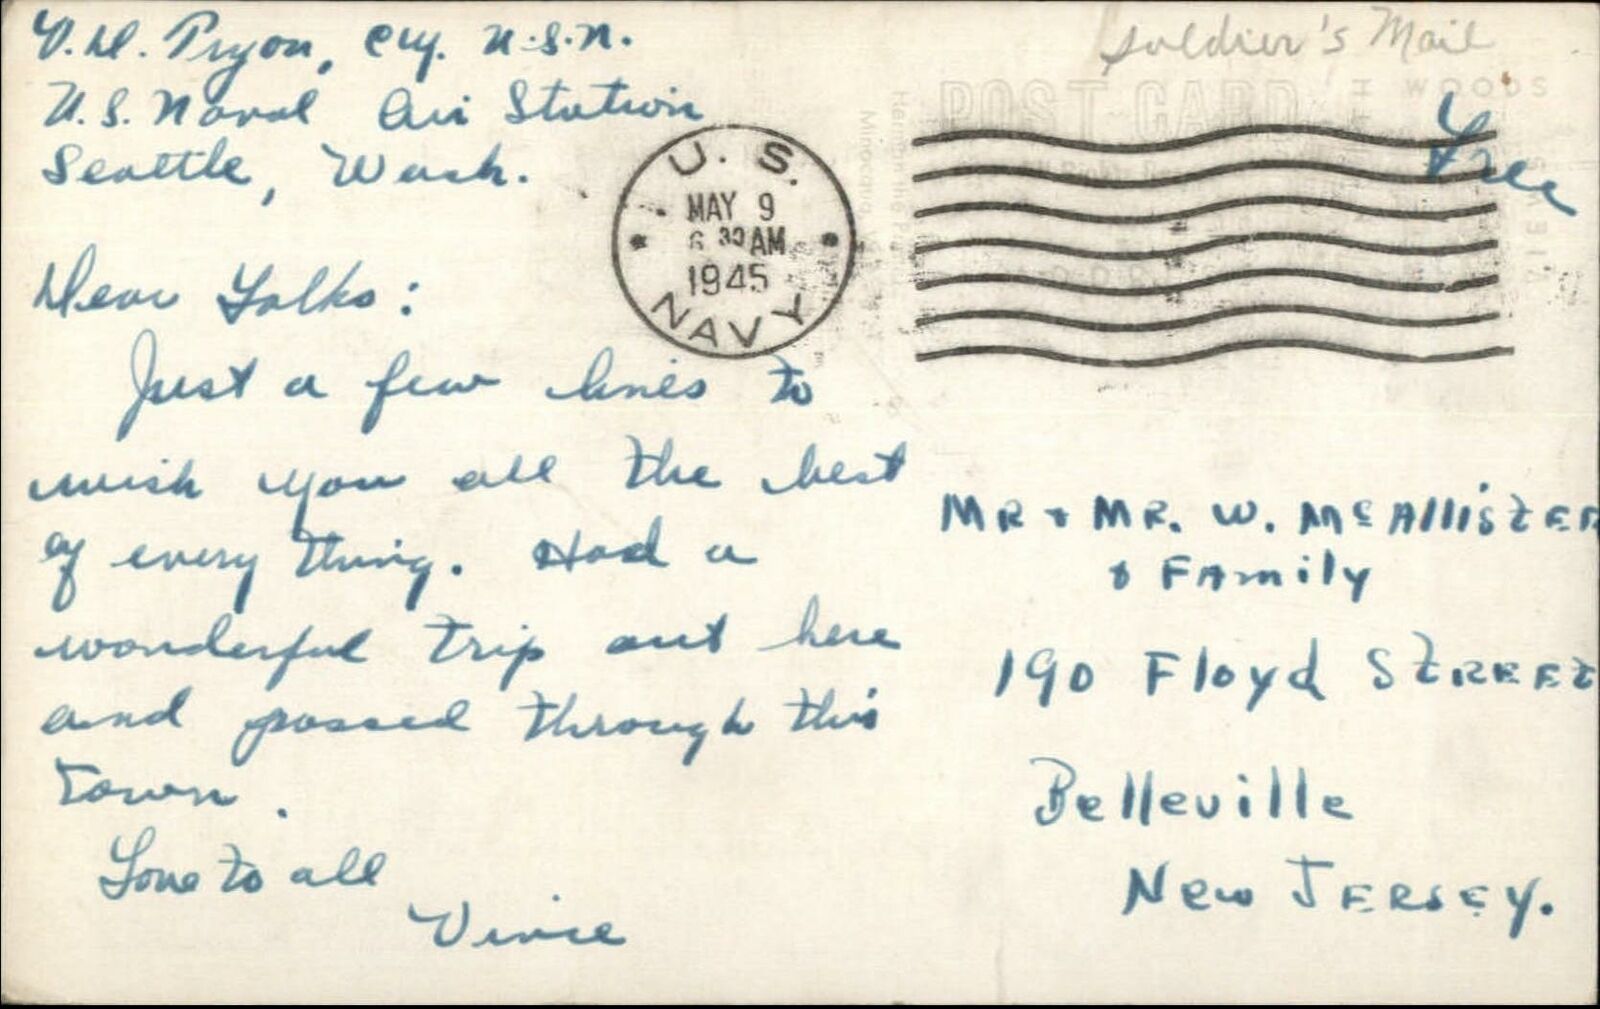 V. H. Pryor, Cy. U.S.N.
U.S. Naval Air Station
Seattle, Wash.
Soldier's Mail
POST CARD
WOODS
Free
U. S.
MAY 9
6 30 AM
1945
NAVY
Dear Folks:
Just a few lines to
wish you all the best
of every thing. Had a
wonderful trip out here
and passed through this
town.
Love to all
Vince
MR + MR. W. McAlliSTER
+ FAmily
190 Floyd STREET
Belleville
New JERSEY.